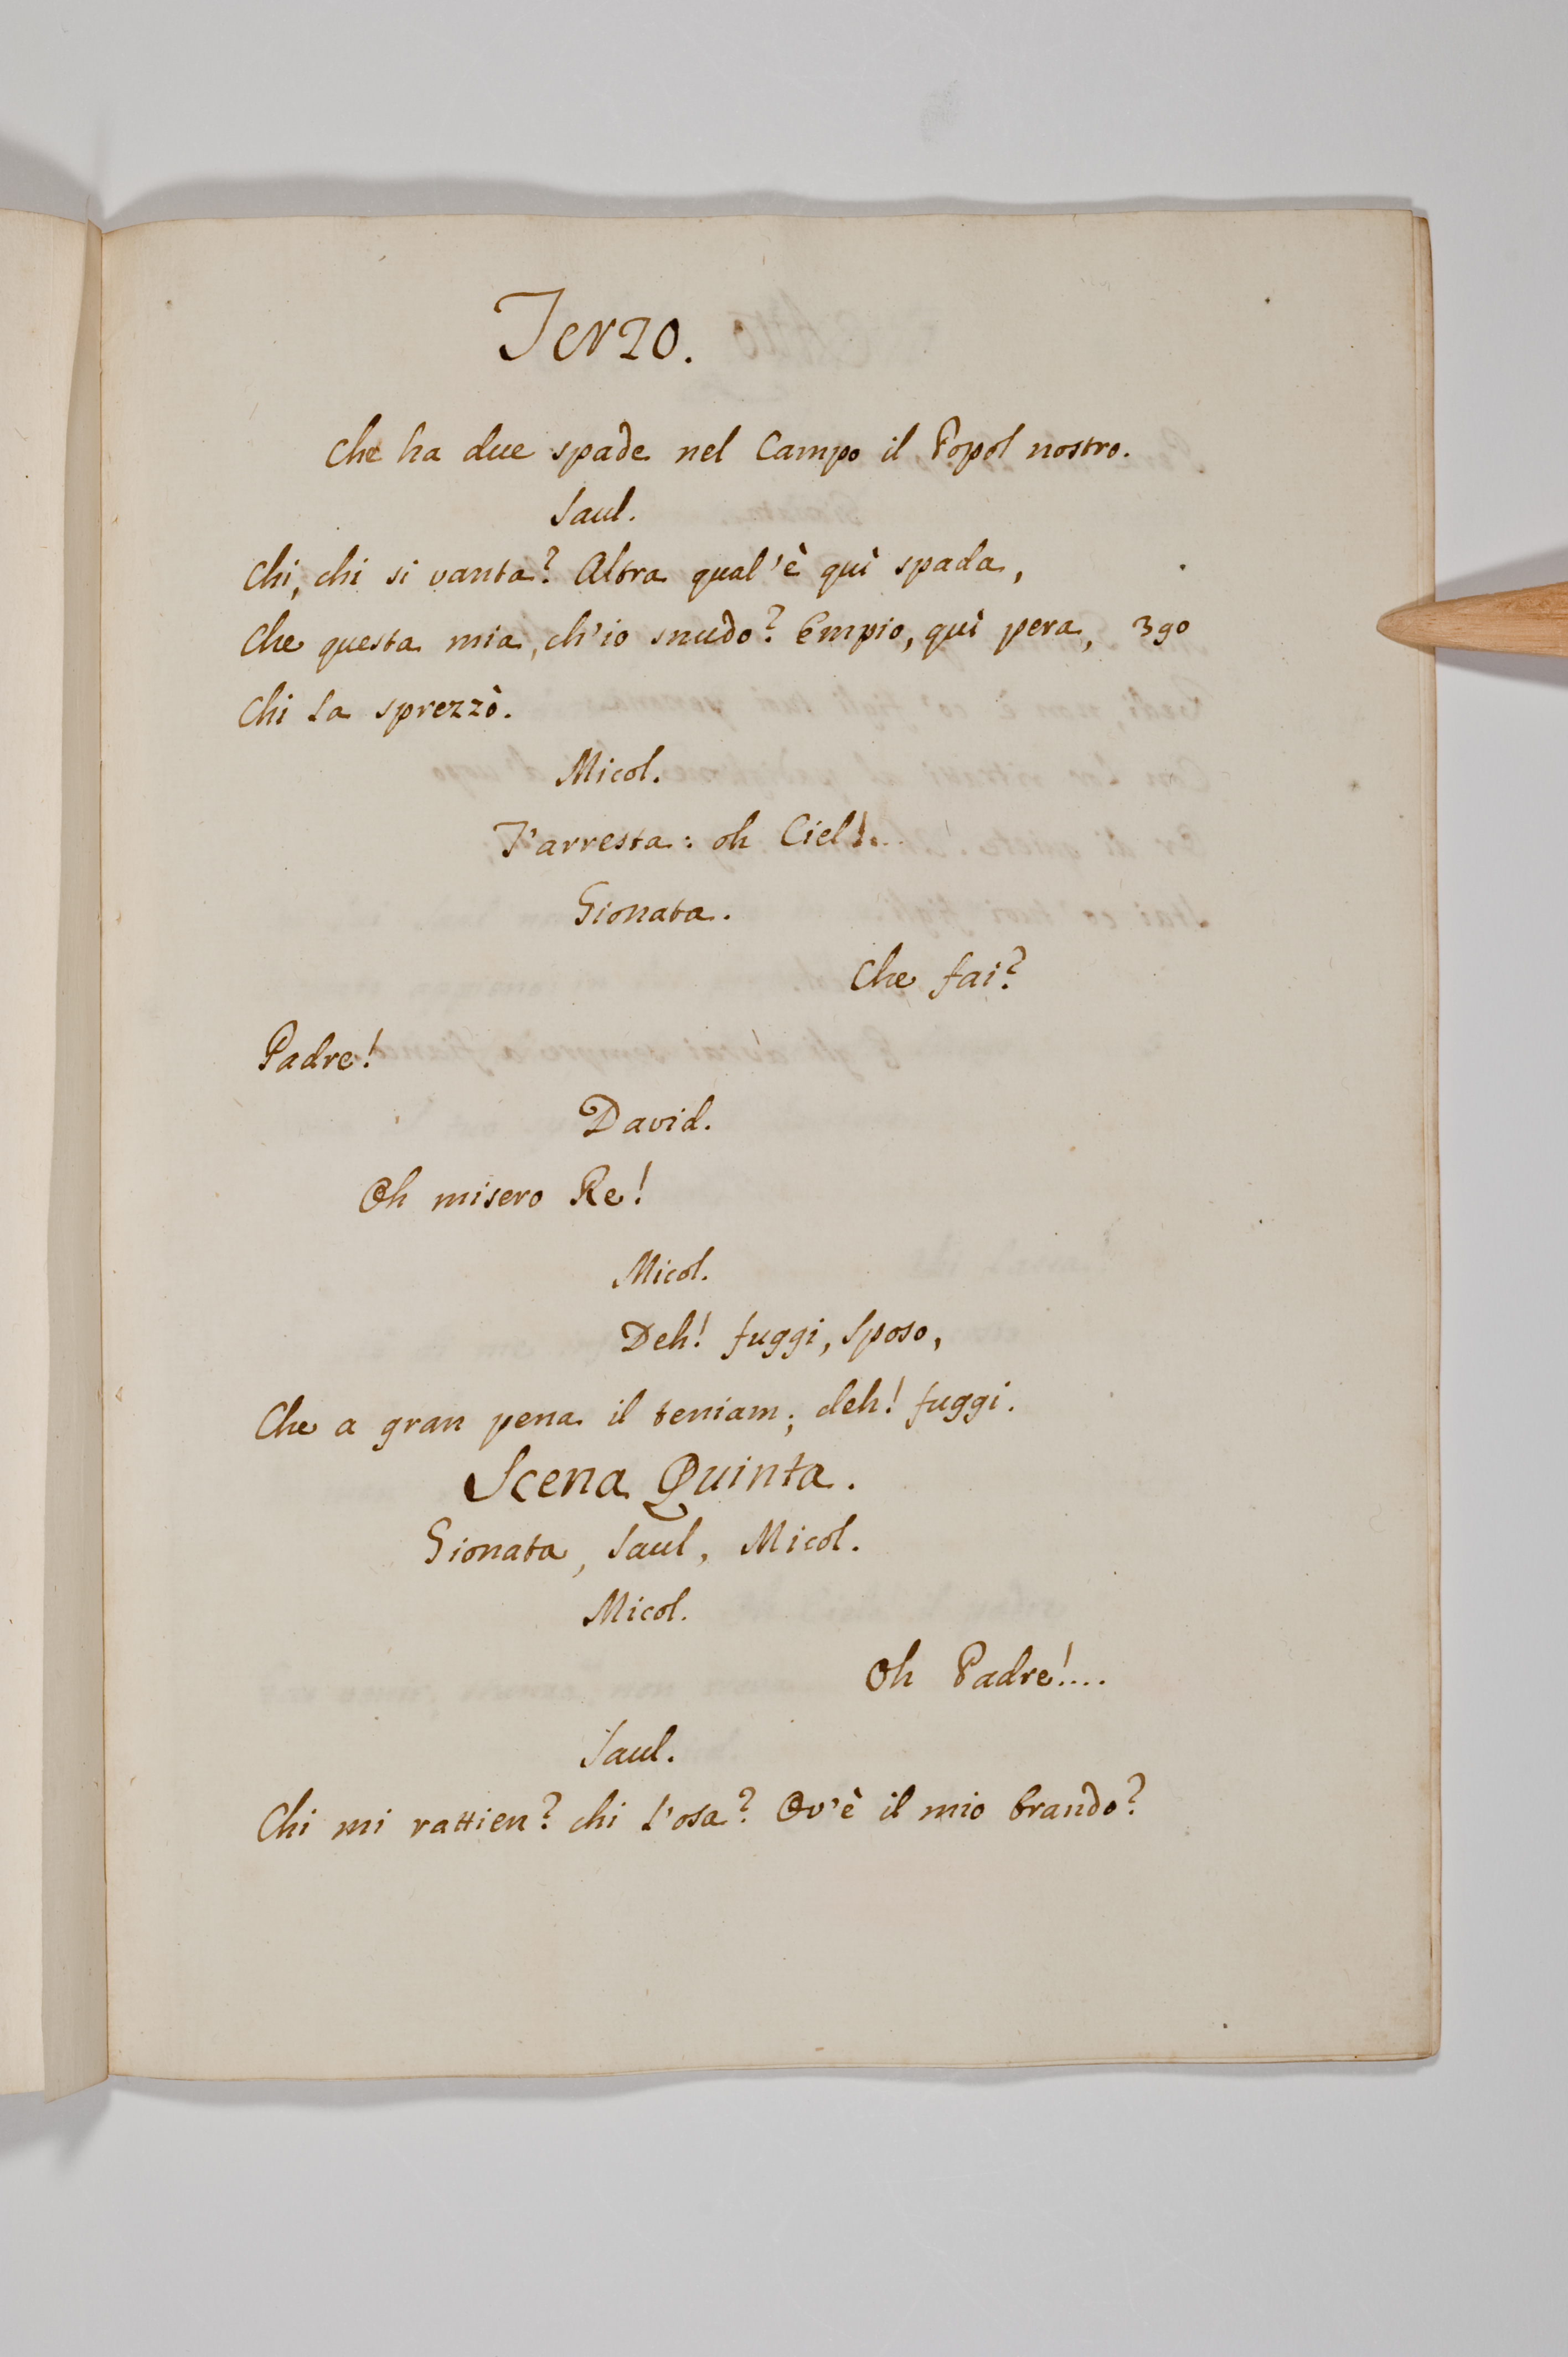 Terzo.
Che ha due spade nel Campo il Popol nostro.
Saul.
Chi, chi si vanta? Altra qual'è quì spada,
Che questa mia, ch'io snudo? Empio, quì pera, 390
Chi la sprezzò.
Micol.
T'arresta: oh Ciel!..
Gionata.
Che fai?
Padre!
David.
Oh misero Re!
Micol.
Deh! fuggi, Sposo,
Che a gran pena il teniam; deh! fuggi.
Scena Quinta.
Gionata, Saul, Micol.
Micol.
Oh Padre!....
Saul.
Chi mi rattien? chi l'osa? Ov'è il mio brando?